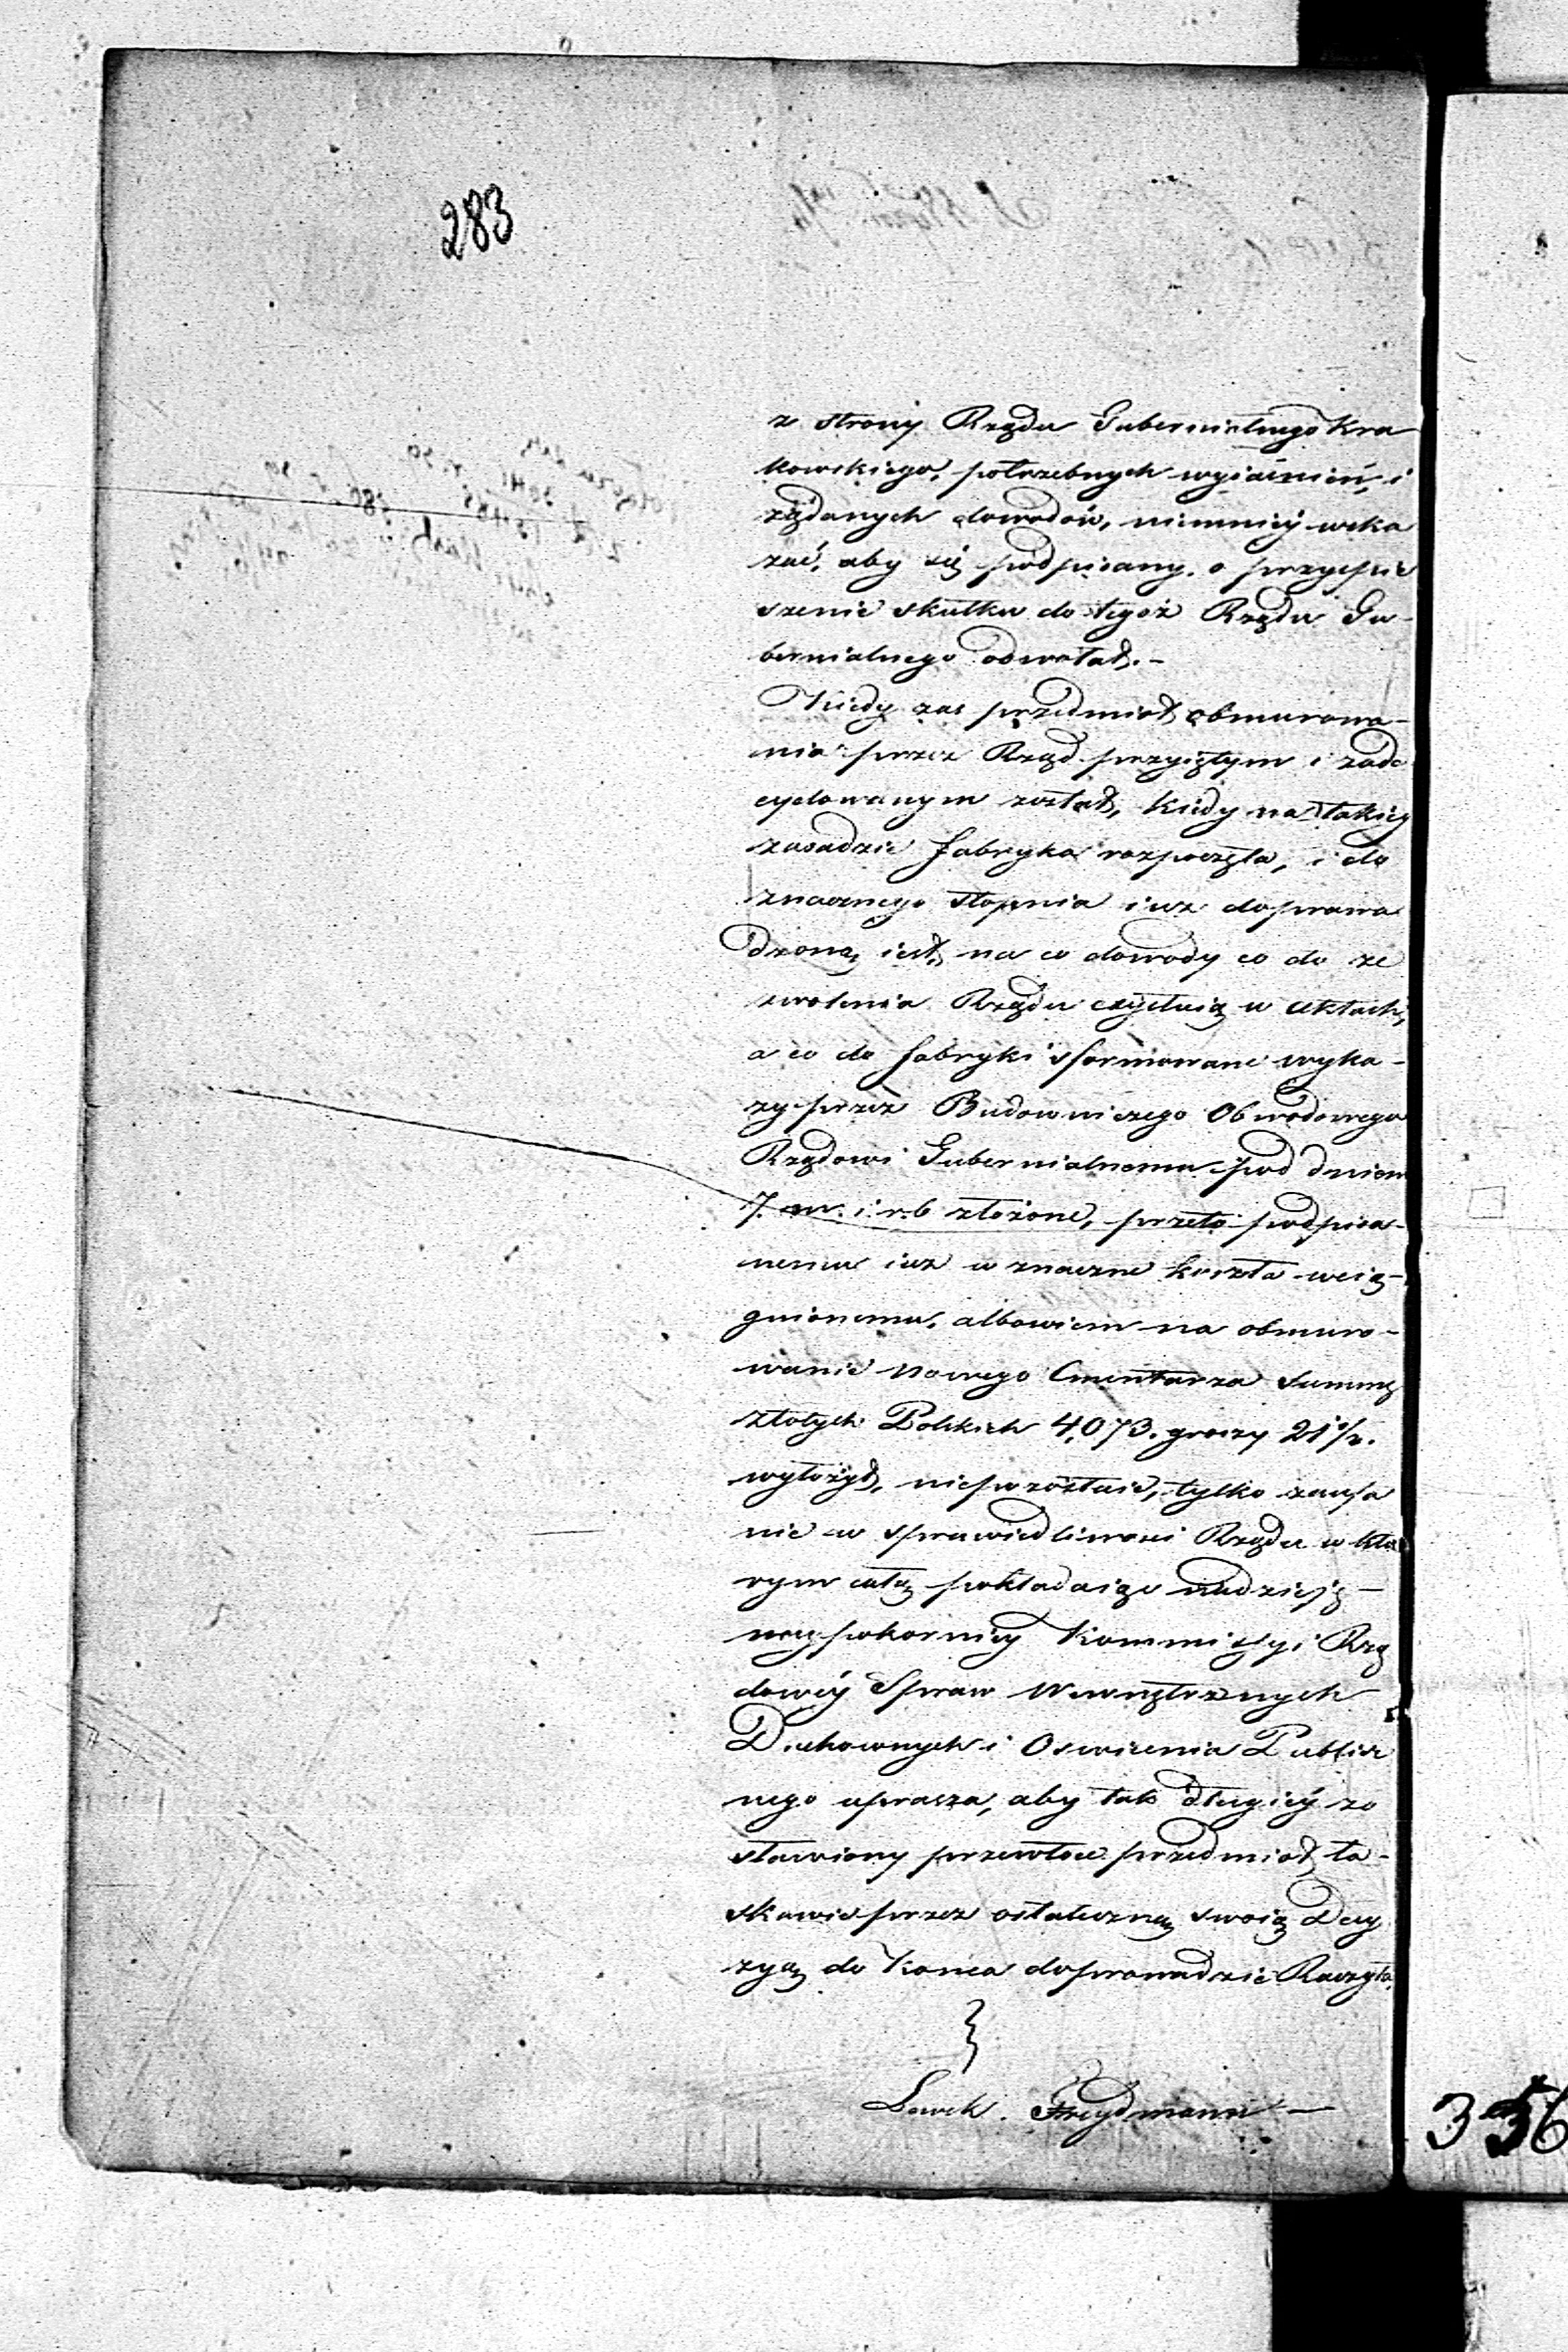 283
z strony Rządu Gubernialnego Kra
kowskiego, potrzebnych wyiaśnień, i
żądanych dowodów, niemniéy wska
zać, aby się podpisany, o przyspie
szenie skutku do tegoż Rządu Gu-
bernialnego odwołał.-
Kiedy zas przedmiot obmurowa-
nia przez Rząd przyiętym i zade
cydowanym został, kiedy na takiey
zasadzie fabryka rozpoczęta, i do
znacznego stopnia iuz doprowa
dzoną iest, na co dowody co do ze
zwolenia Rządu exystuią w aktach,
a co do fabryki sformowane wyka-
zy przez Budowniczego Obwodowego
Rządowi Gubernialnemu pod dniem
7. m. i r. b złożone, przeto podpisa-
nemu iuz w znaczne koszta wcią-
gnionemu, albowiem na obmuro-
wanie nowego Cmentarza summę
złotych Polskich 4,073. groszy 21 1/2.
wyłożył, niepozostaie, tylko zaufa
nie w sprawiedliwosci Rządu w któ
rym całą pokładaiąc nadzieję-
naypokorniéy Kommissyi Rzą
dowéy Spraw Wewnętrznych
Duchownych i Oswiecenia Publicz
nego uprasza, aby tak długiéy zo
stawiony przewłoce przedmiot ła-
skawie przez ostateczną swoią Decy
zyą do konca doprowadzić Raczyła.
Lewek. Freydmann-
356